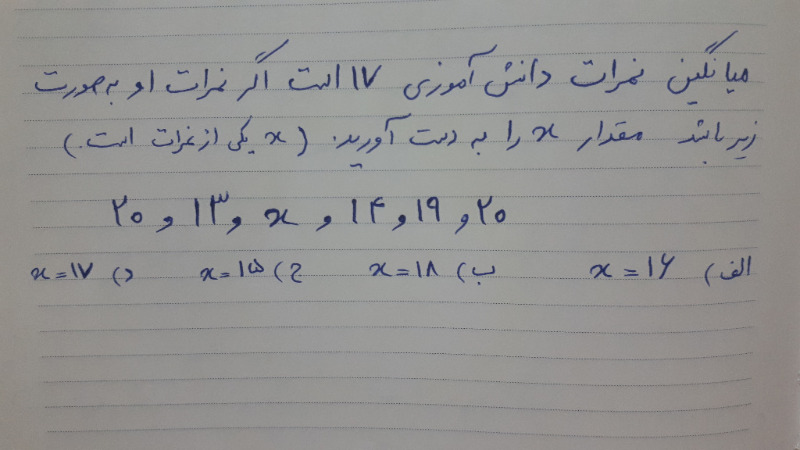 میانگین نمرات دانش آموزی ۱۷ است اگر نمرات او به صورت
زیر باشد مقدار x را به دست آورید. (x یکی از نمرات است.)
۲۰ و ۱۹ و ۱۴ و x و ۱۳ و ۲۰
الف) x=۱۶ ب) x=۱۸ ج) x=۱۵ د) x=۱۷